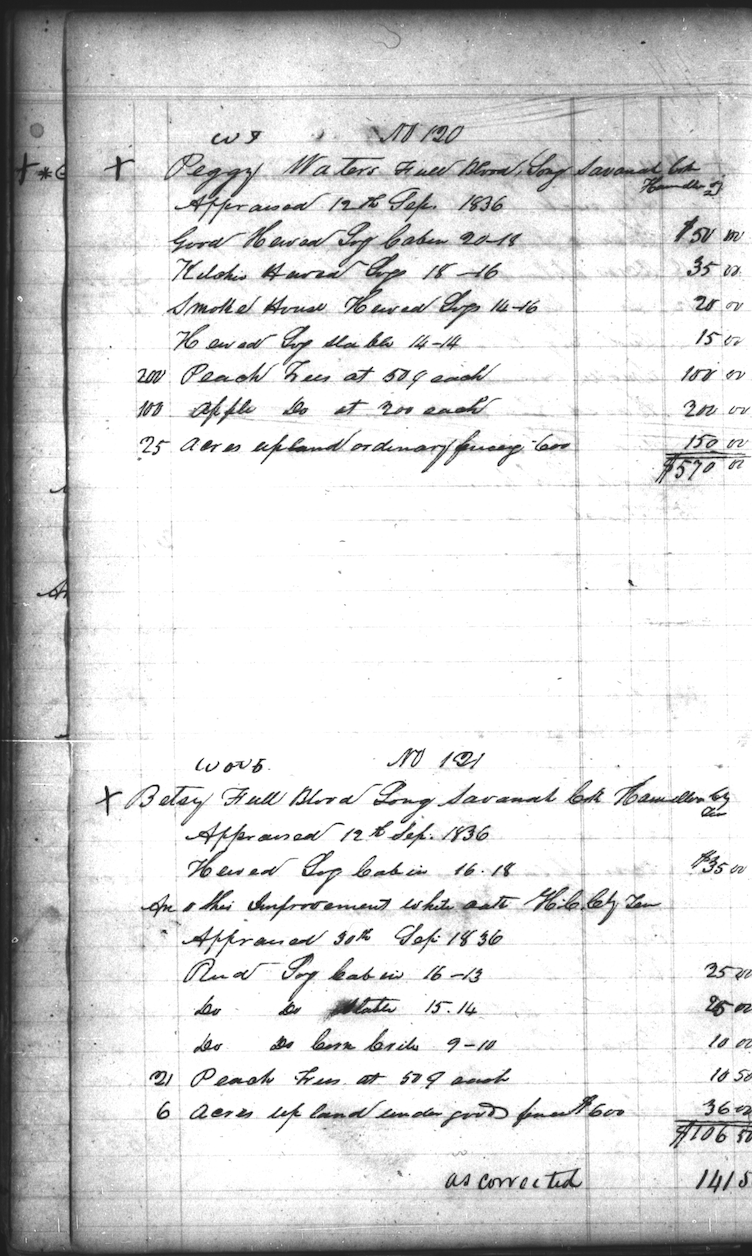 W 9 No 120
+ Peggy Waters Full Blood Long Savanah Crk
Hamilton
Appraised 12th Sep. 1836
Good Hewed Log Cabin 20-18 $50 00
Kitchin Hewed Logs 18-16 35 00
Smoke House Hewed Logs 14-16 20 00
Hewed Log Stable 14-14 15 00
200 Peach Trees at 50 ¢ each 100 00
100 apple Do at 200 each 200 00
25 Acres upland ordinary fencg. 600 150 00
$570 00
No 121
+ Betsy Full Blood Long Savanah Crk Hamilton Cty
Ten
Appraised 12th Sep. 1836
Hewed Log Cabin 16.18 $35 00
An other Improvement white oak H.C. Cty Ten
Appraised 30th Sep. 1836
Rud Log Cabin 16-13 25 00
Do Do Stable 15.14 25 00
Do Do Corn Crib 9-10 10 00
21 Peach Trees at 50 ¢ each 10 50
6 Acres up land under good fence $600 36 00
$106 50
as corrected 141 5